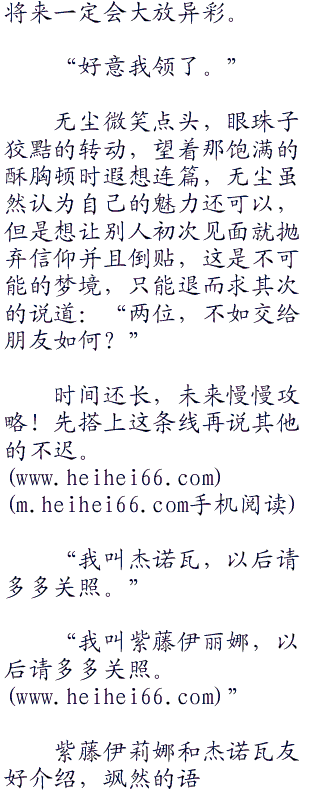 将来一定会大放异彩。
“好意我领了。”
无尘微笑点头，眼珠子
狡黠的转动，望着那饱满的
酥胸顿时遐想连篇，无尘虽
然认为自己的魅力还可以，
但是想让别人初次见面就抛
弃信仰并且倒贴，这是不可
能的梦境，只能退而求其次
的说道：“两位，不如交给
朋友如何？”
时间还长，未来慢慢攻
略！先搭上这条线再说其他
的不迟。
(www.heihei66.com)
(m.heihei66.com手机阅读)
“我叫杰诺瓦，以后请
多多关照。”
“我叫紫藤伊丽娜，以
后请多多关照。
(www.heihei66.com)”
紫藤伊莉娜和杰诺瓦友
好介绍，飒然的语